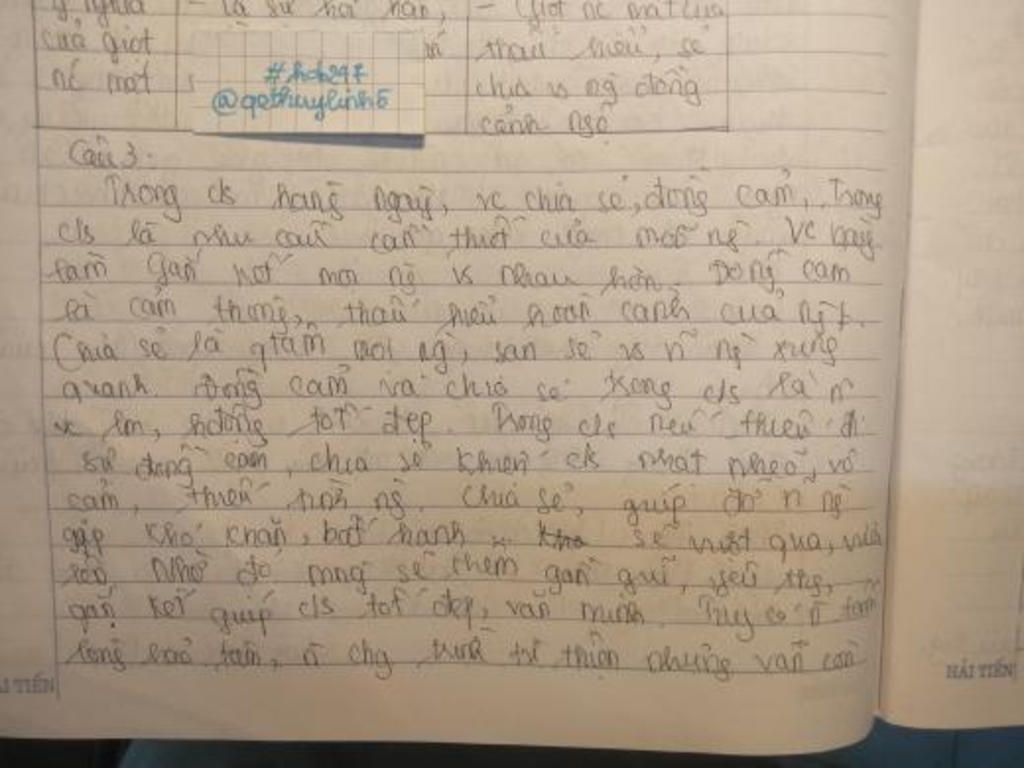 ý nghĩa - là sự hối hận, - Giọt nc mắt của
của giọt thấu hiểu, sẻ
nc mắt chia vs ng đồng
cảnh ngộ
#hoh247
@qethuylinh5
Câu 3:
Trong c/s hàng ngày, vc chia sẻ, đồng cảm, trong
c/s là nhu cầu cần thiết của mỗi ng. Vc này
làm gắn kết mọi ng vs nhau hơn. Đồng cảm
là cảm thông, thấu hiểu hoàn cảnh của ng
Chia sẻ là qtâm mọi ng, san sẻ vs n ng xung
quanh. Đồng cảm và chia sẻ trong c/s là n
vc lm, hđồng tốt đẹp. Trong c/s nếu thiếu đi
sự đồng cảm, chia sẻ khiến c/s nhạt nhẽo, vô
cảm, thiếu tình ng. Chia sẻ, giúp đỡ n ng
gặp khó khăn, bất hạnh sẽ vượt qua,
Nhờ đó mng sẽ thêm gần gũi, yêu thg,
gắn kết giúp c/s tốt đẹp, văn minh. Tuy có n tấm
lòng bao tâm, n chg trình từ thiện nhưng vẫn còn
HẢI TIẾN
HẢI TIẾN